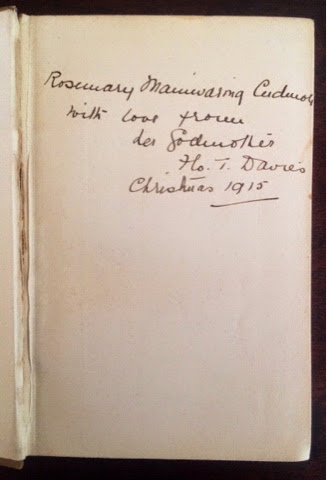 Rosemary Mainwaring Cudmore
with love from
her Godmother
Flo. T. Davies
Christmas 1915